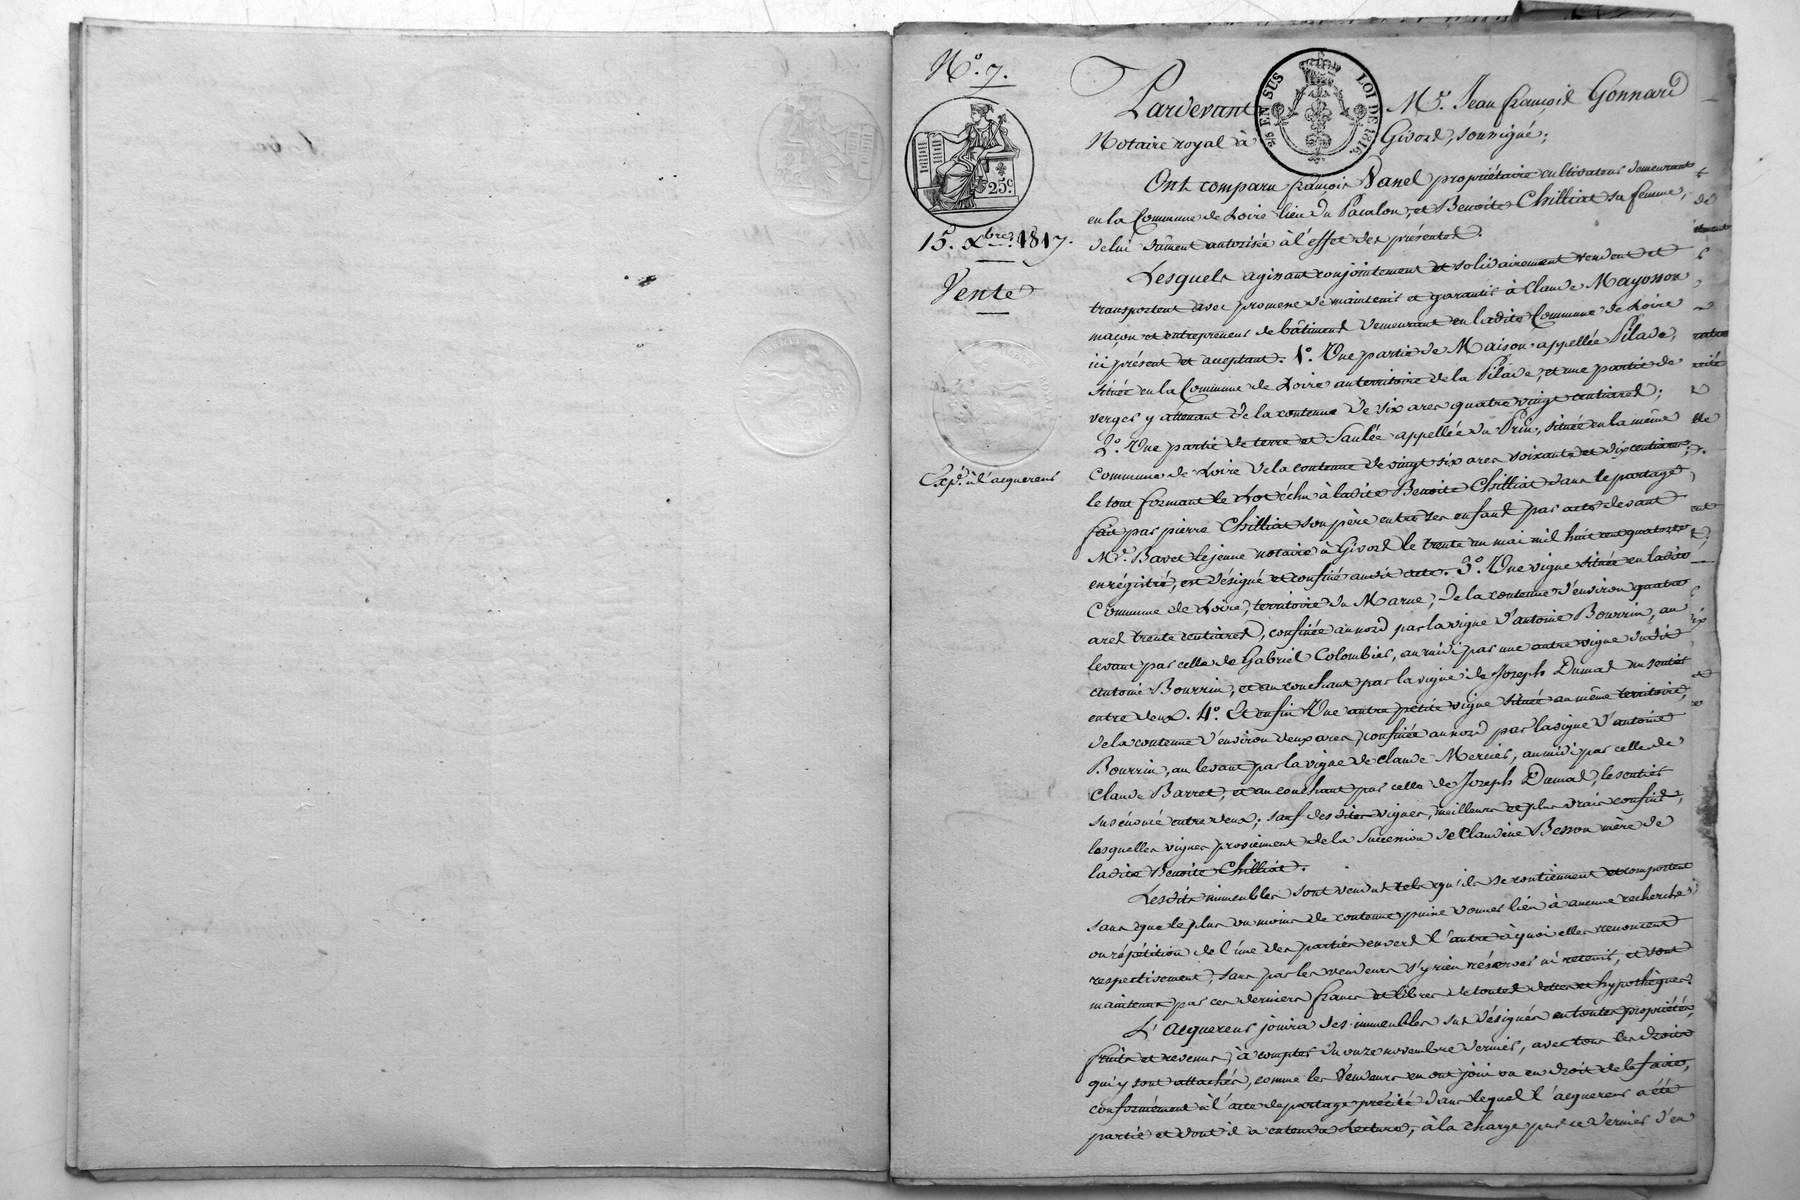 N.° 7.
25c.
15. Xbre. 1817.
Vente
Exp.on à l'acquereur
2/5 EN SUS LOI DE 1816.
Pardevant M.e Jean françois Gonnard
Notaire royal à Givord, soussigné;
Ont comparu françois Vanel propriétaire cultivateur demeurant
en la Commune de Loire lieu du Pacalon, et Benoite Chilliat sa femme,
de lui dûment autorisée à l'effet des présentes.
Lesquels agissant conjointement et solidairement vendent et
transportent avec promesse de maintenir et garantir à Claude Mayosson
maçon et entrepreneur de bâtiment demeurant en ladite Commune de Loire
ici présent et acceptant. 1.° Une partie de Maison appellée Pilade,
située en la Commune de Loire au territoire de la Pilade, et une partie de
verger y attenant de la contenue de six ares quatre vingt centiares;
2.° Une partie de terre et Saulée appellée du Prin, située en la même
commune de Loire de la contenue de vingt six ares soixante et dix centiares;
le tout formant le Lot échu à ladite Benoite Chilliat dans le partage
fait par pierre Chilliat son père entre ses enfans par acte devant
M.e Bavet le jeune notaire à Givord le trente un mai mil huit cent quatorze
enrégistré, est désigné et confiné audit acte. 3.° Une vigne située en ladite
Commune de Loire, territoire du Marne, de la contenue d'environ quatre
ares trente centiares, confinée au nord par la vigne d'antoine Bourrin, au
levant par celle de Gabriel Colombier, au midi par une autre vigne dudit
antoine Bourrin, et au couchant par la vigne de Joseph Dumas un sentier
entre deux. 4.° Et enfin Une autre petite vigne située au même territoire,
de la contenue d'environ deux ares, confinée au nord par la vigne d'antoine
Bourrin, au levant par la vigne de claude Mercier, au midi par celle de
Claude Barret, et au couchant par celle de Joseph Dumas, le sentier
sus énoncé entre deux; sauf desdites vignes, meilleurs et plus vrais confins,
lesquelles vignes proviennent de la Succession de Claudine Besson mère de
ladite Benoite Chilliat.
Lesdits immeubles sont vendus tels qu'ils se contiennent et comportent
sans que le plus ou moins de contenue puisse donner lieu à aucune recherche
ou répétition de l'une des parties envers l'autre à quoi elles renoncent
respectivement, sans par les vendeurs s'y rien réserver ni retenir, et sont
maintenus par ces derniers francs et libres de toutes dettes et hypothèques.
L'acquereur jouira des immeubles sus désignés en toutes propriétés,
fruits et revenus, à compter du onze novembre dernier, avec tous les droits
qui y sont attachés, comme les Vendeurs en ont joui ou eu droit de le faire,
conformément à l'acte de partage précité dans lequel l'acquereur a été
partie et dont il a entendu lecture, à la charge par ce dernier d'en